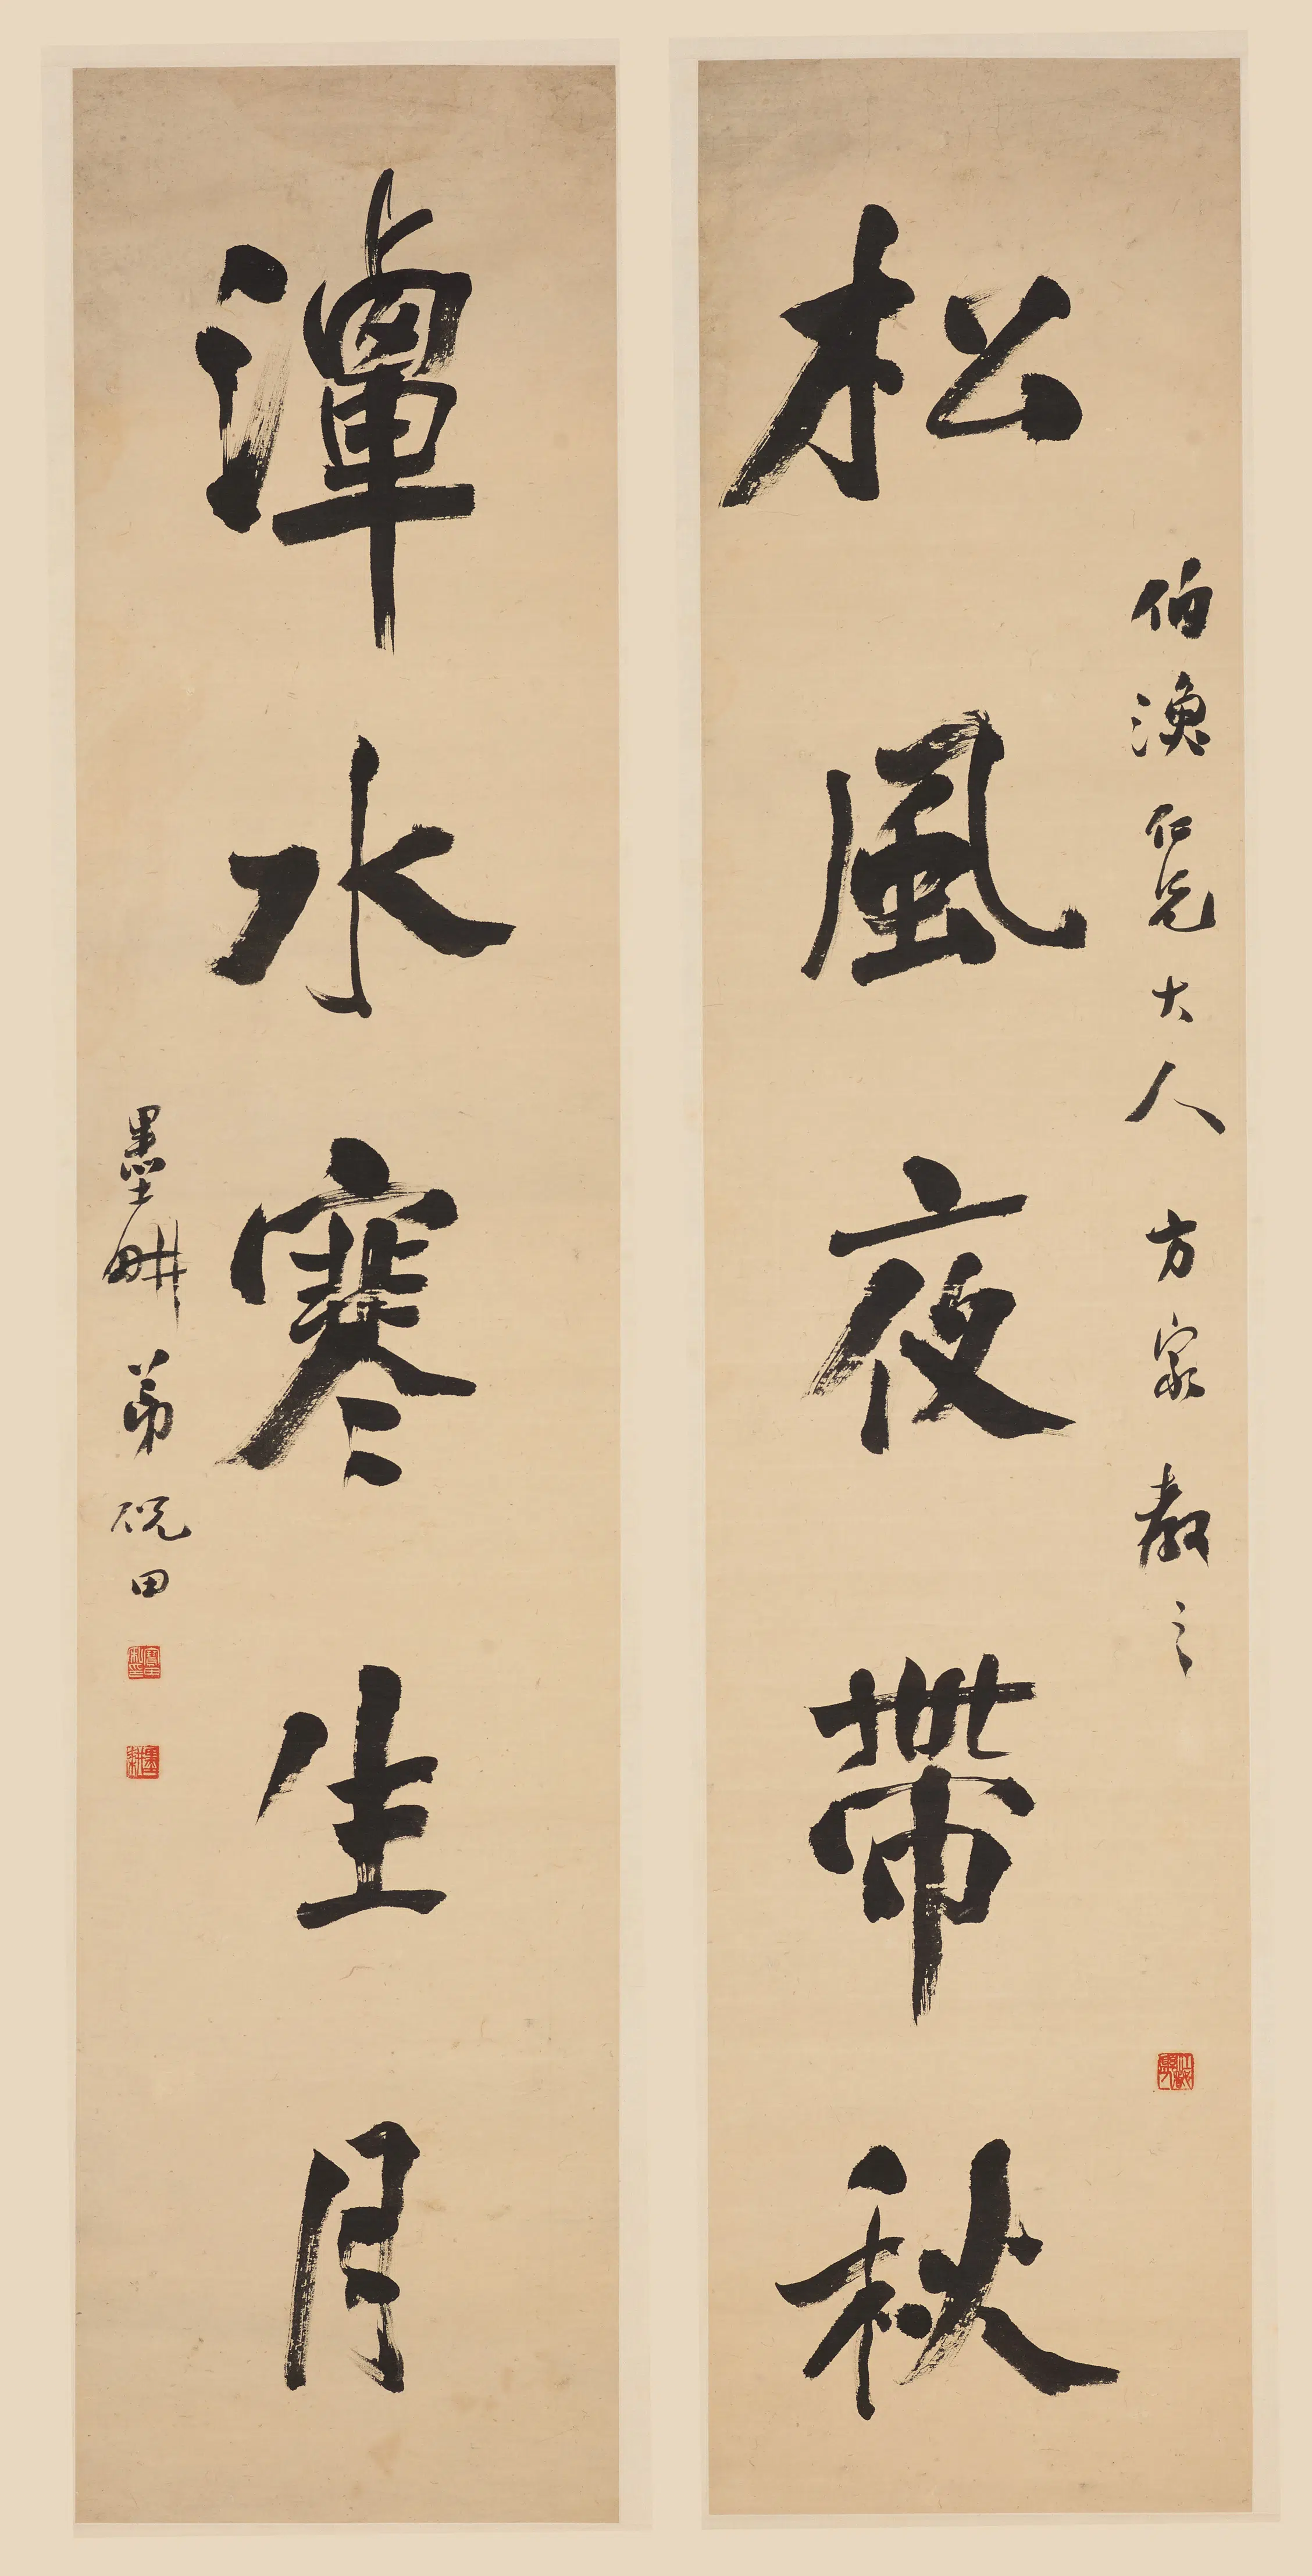 松風夜帶秋
伯漁仁兄大人方家教之
潭水寒生月
墨畊弟倪田
墨耕